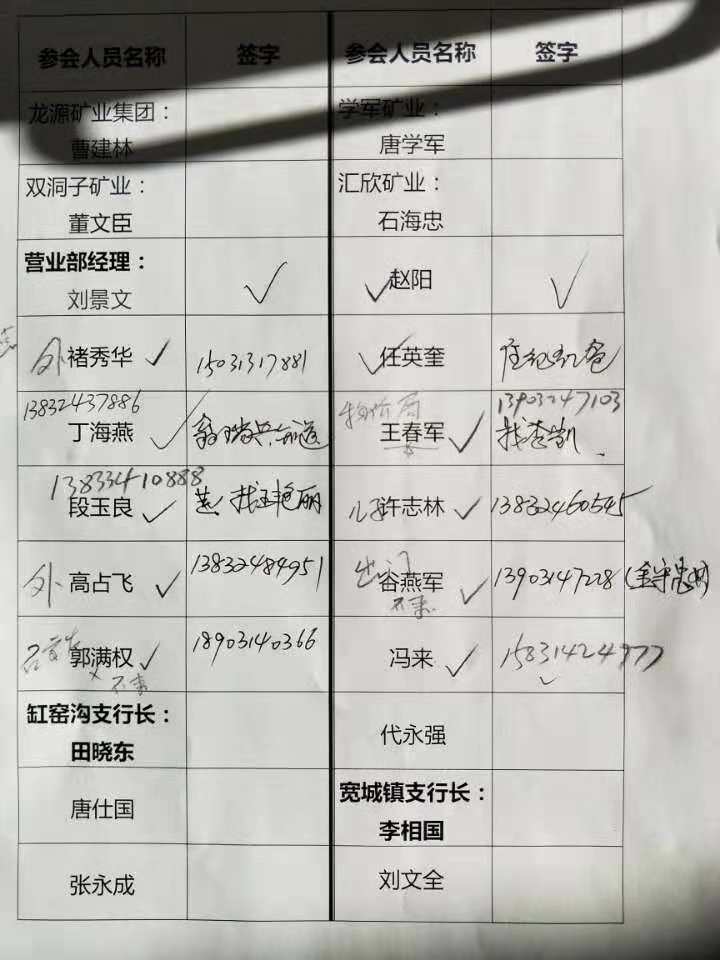 参会人员名称 签字 参会人员名称 签字
龙源矿业集团： 学军矿业：
曹建林 唐学军
双洞子矿业： 汇欣矿业：
董文臣 石海忠
营业部经理：
刘景文 ✓ ✓赵阳 ✓
外 褚秀华 ✓ 15031317881 ✓任英奎
13832437886 物价局 13903247103
丁海燕 ✓ 王春军 ✓ 找李凯
13833410888
段玉良 ✓ 找王艳丽 儿子 许志林 ✓ 13832460545
外 高占飞 ✓ 13832484951 出门 谷燕军 ✓ 13903147228
不来
郭满权 ✓ 18903140366 冯来 ✓ 15831424977
不来
缸窑沟支行长：
田晓东 代永强
唐仕国 宽城镇支行长：
李相国
张永成 刘文全